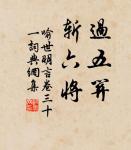 過五關
斬六將
喻世明言卷三十
一詞典網集